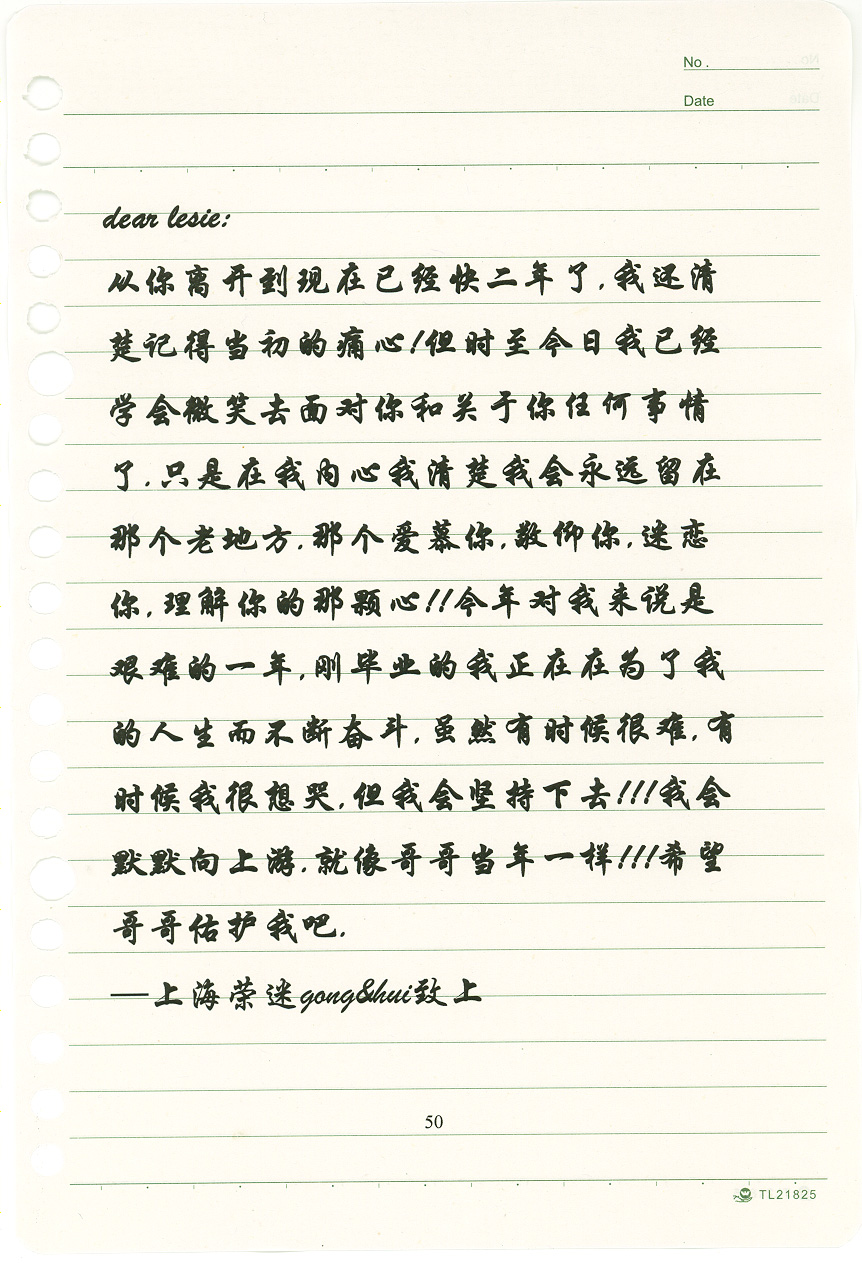 No .
Date
dear lesie:
从你离开到现在已经快二年了.我还清
楚记得当初的痛心!但时至今日我已经
学会微笑去面对你和关于你任何事情
了.只是在我内心我清楚我会永远留在
那个老地方.那个爱慕你.敬仰你.迷恋
你.理解你的那颗心!!今年对我来说是
艰难的一年.刚毕业的我正在在为了我
的人生而不断奋斗.虽然有时候很难.有
时候我很想哭.但我会坚持下去!!!我会
默默向上游.就像哥哥当年一样!!!希望
哥哥佑护我吧.
—上海荣迷gong&hui致上
50
TL21825